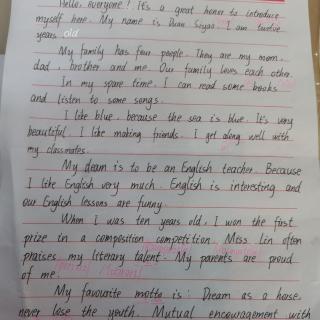 Hello, everyone! It's a great honor to introduce
myself here. My name is Duan Siyao. I am twelve
years old
My family has four people. They are my mom,
dad, brother and me. Our family loves each other.
In my spare time, I can read some books
and listen to some songs.
I like blue, because the sea is blue. It's very
beautiful. I like making friends. I get along well with
my classmates.
My dream is to be an English teacher. Because
I like English very much. English is interesting and
our English lessons are funny.
When I was ten years old, I won the first
prize in a composition competition. Miss Lin often
praises my literary talent. My parents are proud
of me.
My favourite motto is: Dream as a horse,
never lose the youth. Mutual encouragement with